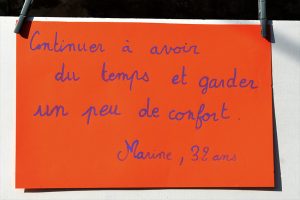 Continuer à avoir
du temps et garder
un peu de confort.
Marine, 32 ans